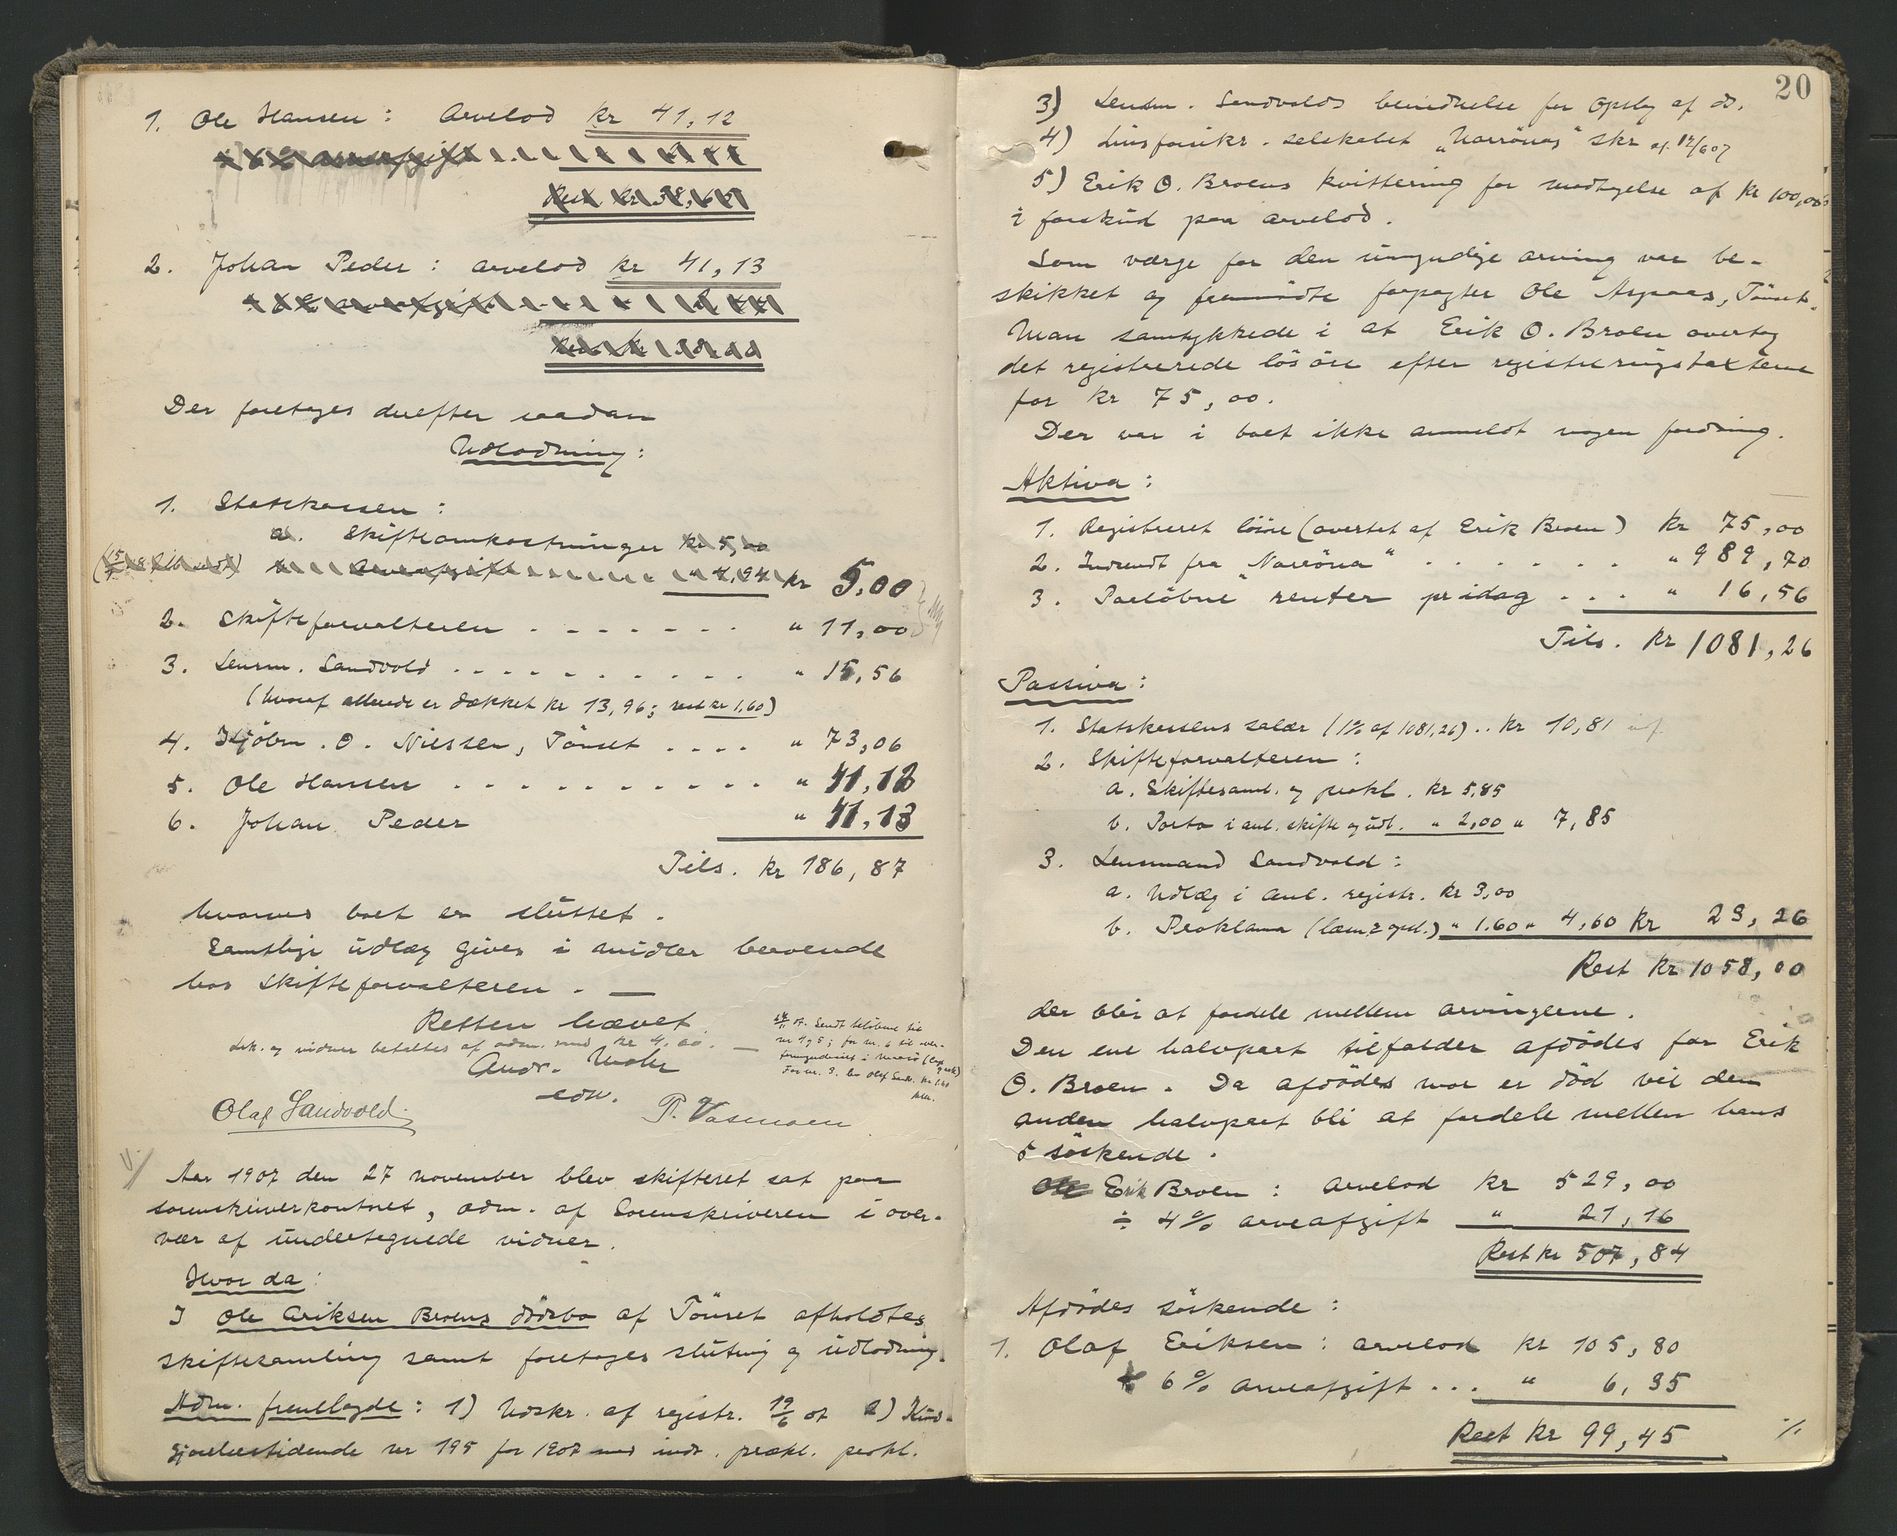 1. Ole Hansen: Arvelod kr 41,12
Rest kr
2. Johan Peder: arvelod kr 41,13
Der foretages derefter saadan
Udlodning:
1. Statskassen:
a. Skifteomkostninger kr 5,00
arveafgift " 4,94 kr 5,00
2. Skifteforvalteren . . . . . . . " 11,00
3. Lensm. Sandvold . . . . . . . . . . " 15,56
(hvoraf allerede er dækket kr 13,96; rest kr 1,60)
4. Kjøbm. O. Nilssen, Tönset . . . . " 73,06
5. Ole Hansen . . . . . . . . . . " 41,12
6. Johan Peder " 41,13
Tils. kr 186,87
hvorved boet er sluttet.
Samtlige udlæg gives i midler beroende
hos skifteforvalteren. —
Retten hævet.
Dek. og vidner betaltes af adm. med kr 4,00. —
Andr. Mohr
con.
Olaf Sandvold. P. Vasmoen
Aar 1907 den 27 november blev skifteret sat paa
sorenskriverkontoret, adm. af Sorenskriveren i over-
vær af undertegnede vidner.
Hvor da:
I Ole Eriksen Broens dödsbo af Tönset afholdtes
skiftesamling samt foretoges slutning og udlodning.
Adm. fremlagde: 1) Udskr. af registr. 19/6 07 2) Kund-
gjørelsestidende nr 195 for 1907 med indr. prækl. prokl.
20
3) Lensm. Sandvolds bevidnelse for opslag af do.
4) Livsforsikr.-selskabet "Norrönas" skr af 12/6 07
5) Erik O. Broens kvittering for modtagelse af kr 100,00
i forskud paa arvelod.
Som værge for den umyndige arving var be-
skikket og fremmödte forpagter Ole Aspaas, Tönset.
Man samtykkede i at Erik O. Broen overtog
det registrerede lösöre efter registreringstaxterne
for kr 75,00.
Der var i boet ikke anmeldt nogen fordring.
Aktiva:
1. Registreret lösöre (overtat af Erik Broen) kr 75,00
2. Indsendt fra "Norröna" . . . . . . " 989,70
3. Paalöbne renter pr idag . . . " 16,56
Tils. kr 1081,26
Passiva:
1. Statskassens salær (1% af 1081,26) .. kr 10,81
2. Skifteforvalteren:
a. Skiftesaml. og prokl. kr 5,85
b. Porto i anl. skifte og udl. " 2,00 " 7,85
3. Lensmand Sandvold:
a. Udlæg i anl. registr. kr 3,00
b. Proklama (læsn. & opsl.) " 1.60 " 4,60 kr 23,26
Rest kr 1058,00
der blir at fordele mellem arvingerne.
Den ene halvpart tilfalder afdödes far Erik
O. Broen. Da afdödes mor er död vil den
anden halvpart bli at fordele mellem hans
5 söskende.
Erik Broen: arvelod kr 529,00
÷ 4% arveafgift " 21,16
Rest kr 507,84
Afdödes söskende:
1. Olaf Eriksen: arvelod kr 105,80
÷ 6% arveafgift . . . " 6,35
Rest kr 99,45